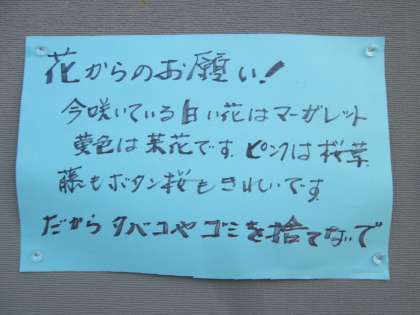 花からのお願い!
今咲いている白い花はマーガレット
黄色は菜花です.ピンクは桜草.
藤もボタン桜もきれいです.
だからタバコやゴミを捨てないで